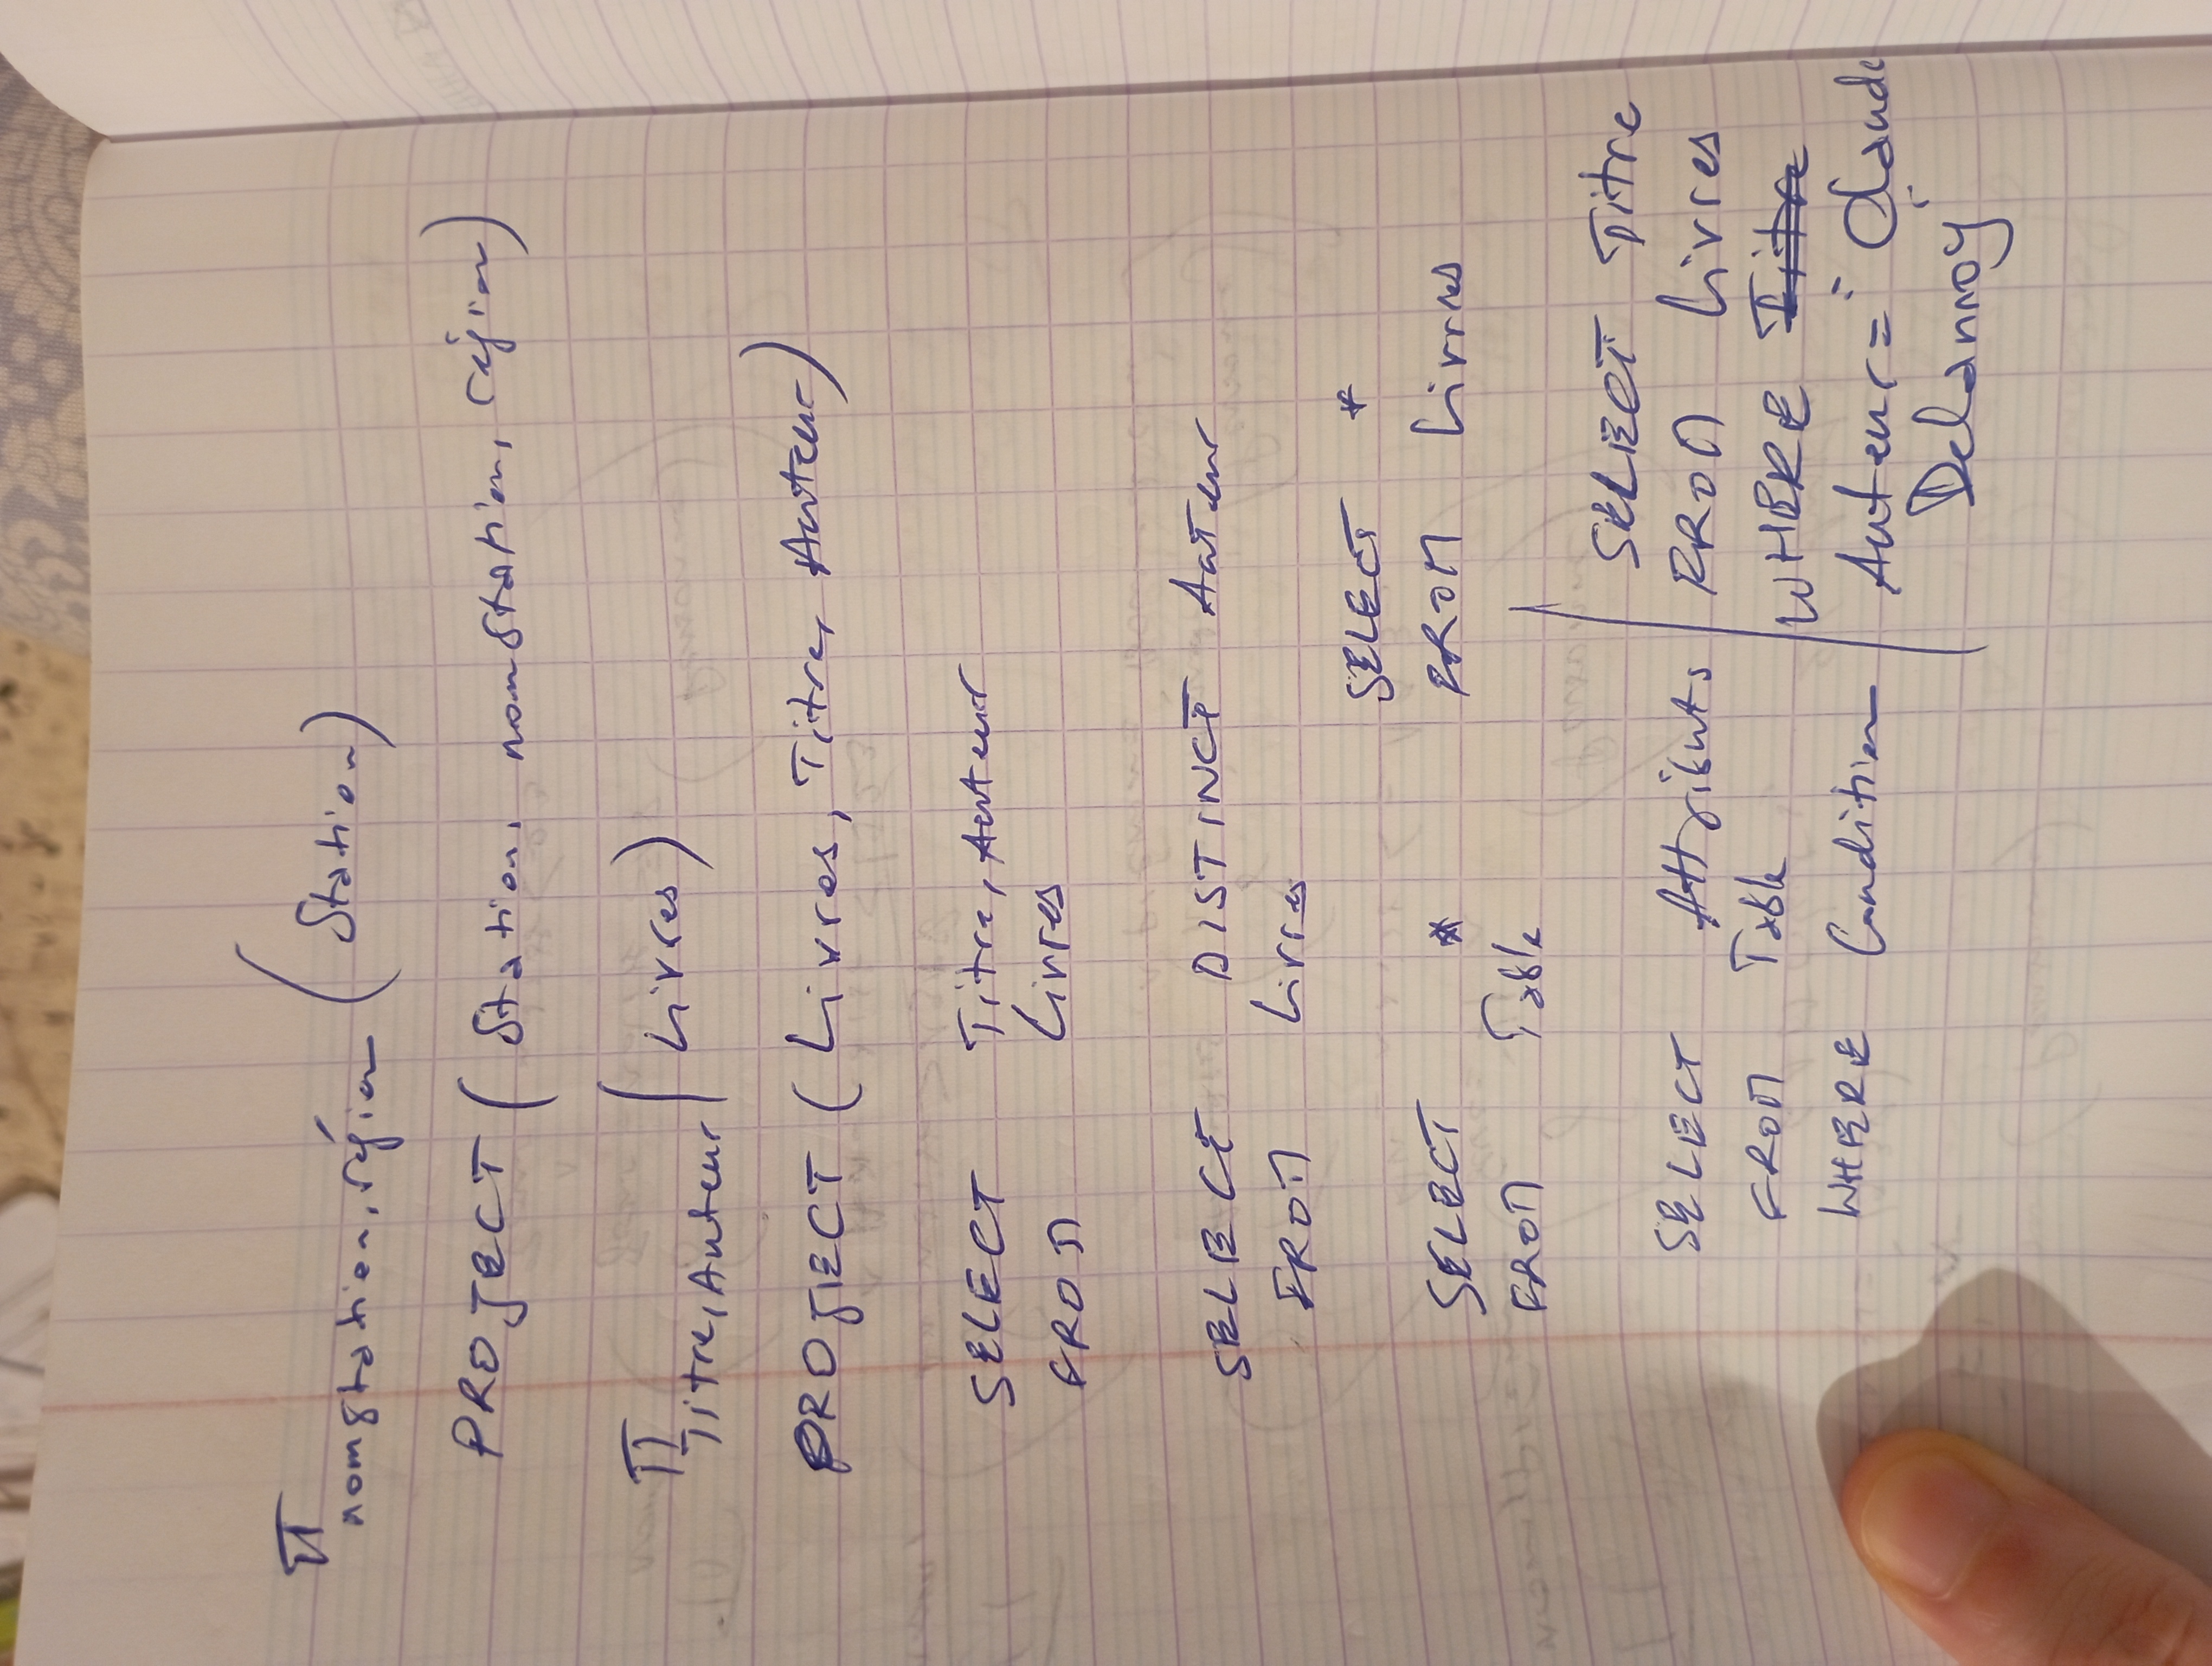 π nomStation, région (Station)
PROJECT (Station, nomStation, région)
π Titre, Auteur (Livres)
PROJECT (Livres, Titre, Auteur)
SELECT Titre, Auteur
FROM Livres
SELECT DISTINCT Auteur
FROM Livres
SELECT *
FROM Table
SELECT *
FROM Livres
SELECT Attributs
FROM Table
WHERE Condition
SELECT Titre
FROM Livres
WHERE
Auteur = "Claude
Delannoy"